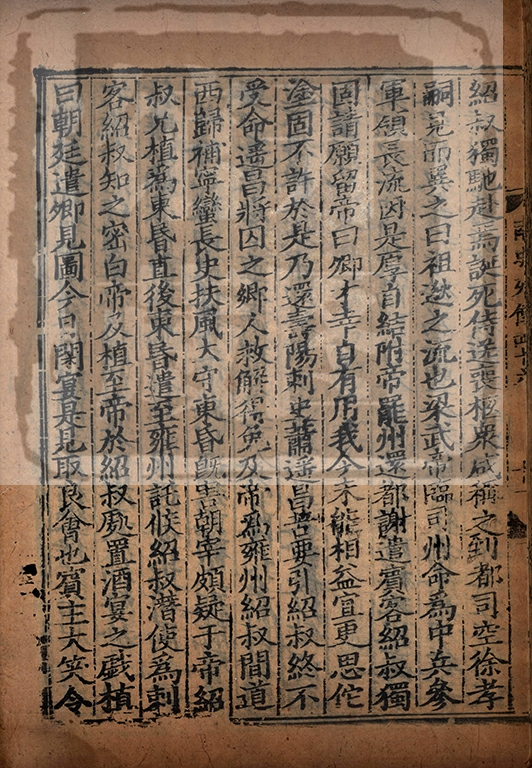 紹叔獨馳赴焉誕死侍送喪柩衆咸稱之到都司空徐孝
嗣見而異之曰祖逖之流也梁武帝臨司州命為中兵參
軍領長流因是厚自結附帝罷州還都謝遣賓客紹叔獨
固請願留帝曰卿才幸自有用我今未能相益宜更思佗
塗固不許於是乃還壽陽刺史蕭遥昌苦要引紹叔終不
受命遥昌將囚之鄉人救解得免及帝爲雍州紹叔間道
西歸補寧蠻長史扶風太守東昏既害朝宰頗疑于帝紹
叔兄植為東昏直後東昏遣至雍州託候紹叔潜使為刺
客紹叔知之密白帝及植至帝於紹叔處置酒宴之戲植
曰朝廷遣卿見圖今日閑宴是見取良會也賓主大笑令